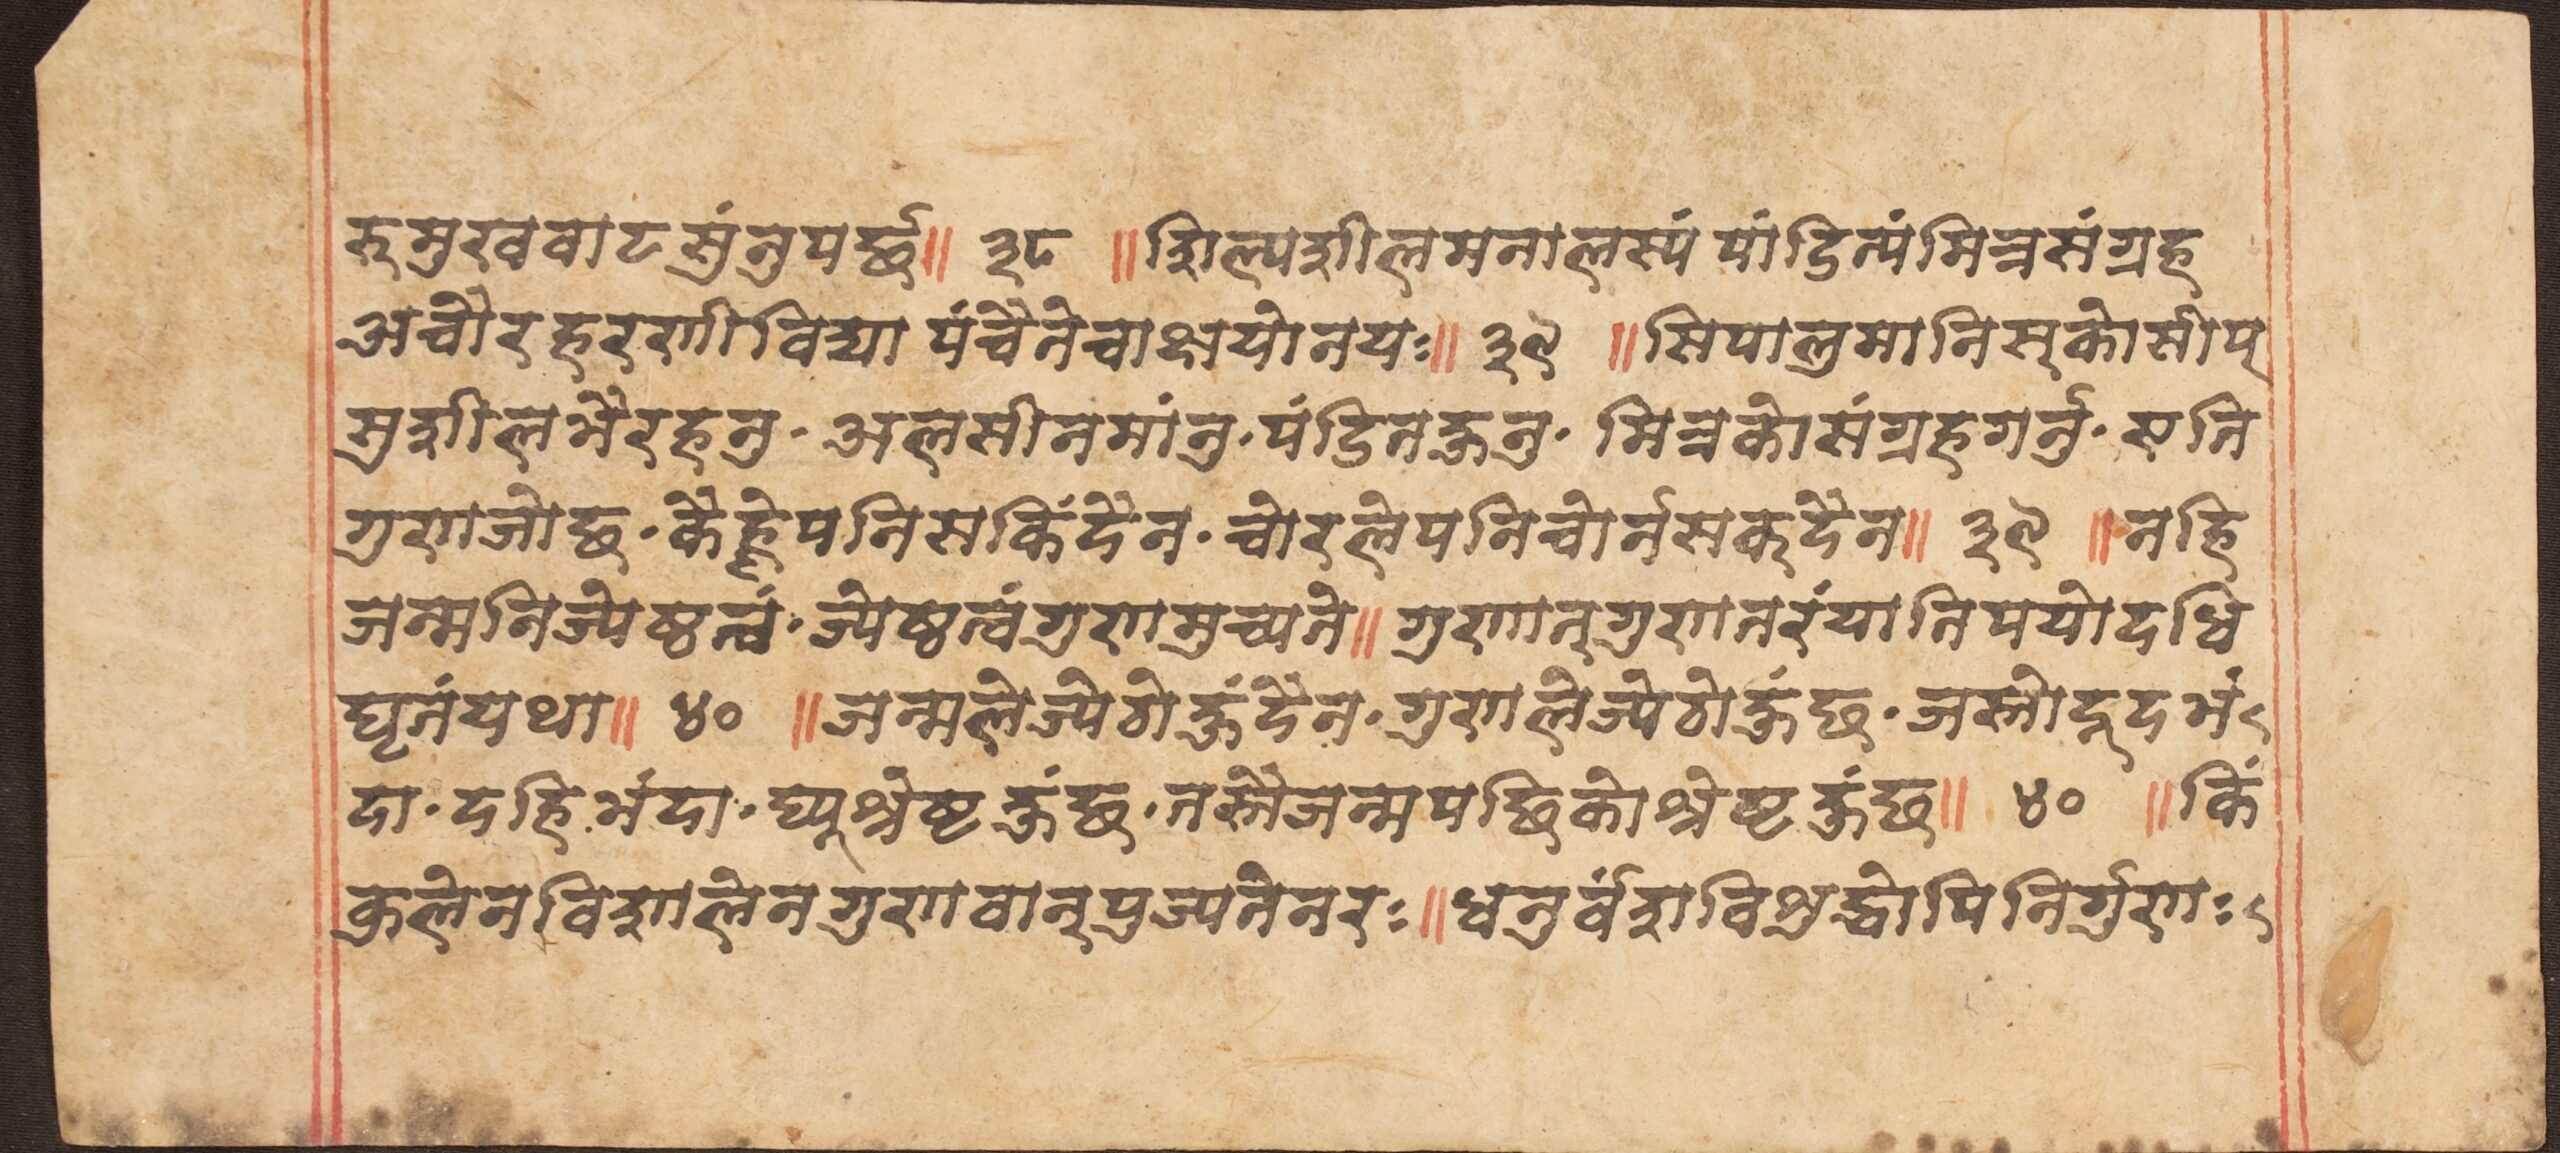 रुमुखवाट सुंनुपर्छ॥ ३८ ॥शिल्पशीलमनालस्यं पांडित्यंमित्रसंग्रह
अचौरहरणीविद्या पंचैतेचाक्षयोनयः॥ ३९ ॥सिपालुमानिस्कोसीप्
सुशीलभैरहनु· अलसीनमांनु·पंडितहुनु· मित्रकोसंग्रहगर्नु· एति
गुणजोछ·कैह्लेपनिसकिंदैन·चोरलेपनिचोर्नसक्दैन॥ ३९ ॥नहि
जन्मनिज्येष्ठत्वं·ज्येष्ठत्वंगुणमुच्यते॥गुणान्गुणतरंयातिपयोदधि
घृतंयथा॥ ४० ॥जन्मलेज्येठोहुंदैन·गुणलेज्येठोहुंछ·जस्तोदूदभं
दा·दहिभंदा·घ्यूश्रेष्टहुंछ·तस्तैजन्मपछिकोश्रेष्टहुंछ॥ ४० ॥किं
कुलेनविशालेनगुणवान्पुज्यतेनरः॥धनुर्वंशविशुद्धोपिनिर्गुणः